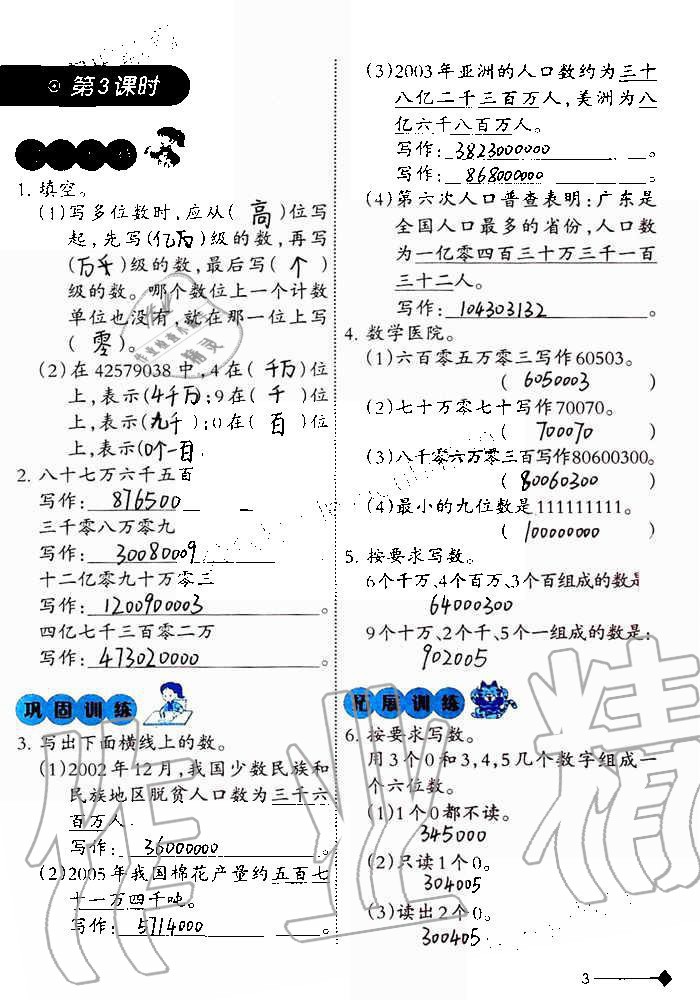 第3课时
1. 填空。
(1)写多位数时,应从( 高 )位写
起,先写(亿万)级的数,再写
(万千)级的数,最后写( 个 )
级的数。哪个数位上一个计数
单位也没有,就在那一位上写
( 零 )。
(2)在 42579038 中,4在( 千万)位
上,表示(4千万);9在( 千 )位
上,表示(九千);0在( 百 )位
上,表示(0个百)
2. 八十七万六千五百
写作: 876500 。
三千零八万零九
写作: 30080009 。
十二亿零九十万零三
写作: 1200900003 。
四亿七千三百零二万
写作: 473020000 。
巩固训练
3. 写出下面横线上的数。
(1)2002年12月,我国少数民族和
民族地区脱贫人口数为三千六
百万人.
写作: 36000000 。
(2)2005年我国棉花产量约五百七
十一万四千吨。
写作: 5714000 。
(3)2003年亚洲的人口数约为三十
八亿二千三百万人,美洲为八
亿六千八百万人。
写作: 3823000000 。
写作: 868000000 。
(4)第六次人口普查表明:广东是
全国人口最多的省份,人口数
为一亿零四百三十万三千一百
三十二人。
写作: 104303132 。
4. 数学医院。
(1)六百零五万零三写作60503。
( 6050003 )
(2)七十万零七十写作70070。
( 700070 )
(3)八千零六万零三百写作80600300。
( 80060300 )
(4)最小的九位数是111111111。
( 100000000 )
5. 按要求写数。
6个千万、4个百万、3个百组成的数是
64000300
9个十万、2个千、5个一组成的数是:
902005
拓展训练
6. 按要求写数。
用3个0和3,4,5几个数字组成一
个六位数。
(1)1个0都不读。
345000
(2)只读1个0。
304005
(3)读出2个0。
300405
作业精
作业检查小助手
精灵
3